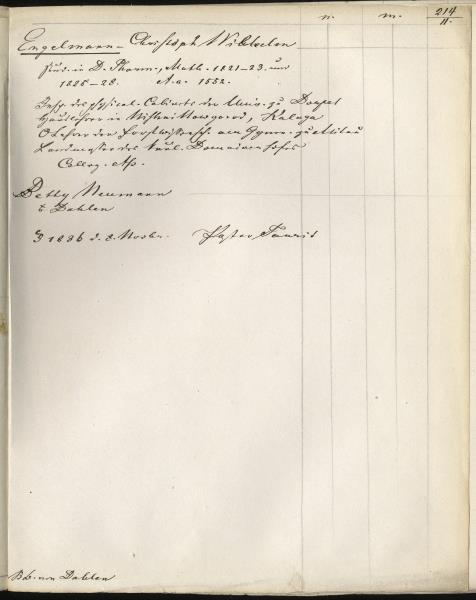 n. m. 214
11.
Engelmann - Christoph Wilhelm
stud. in D. Pharm., Math. 1821-23. und
1825-28. A.a. 1552.
Insp. des physical. Cabinets der Univ. zu Dorpat
Hauslehrer in Nishni Nowgorod, Kaluga
O Lehrer der Forstwissensch. am Gymn. zu Mitau
Landmesser des Kurl. Domainenhofes
Colleg. Ass.
Betty Neumann
t. Dahlen
1836 d. 8. Novbr. Pastor Taurit
Kb. von Dahlen